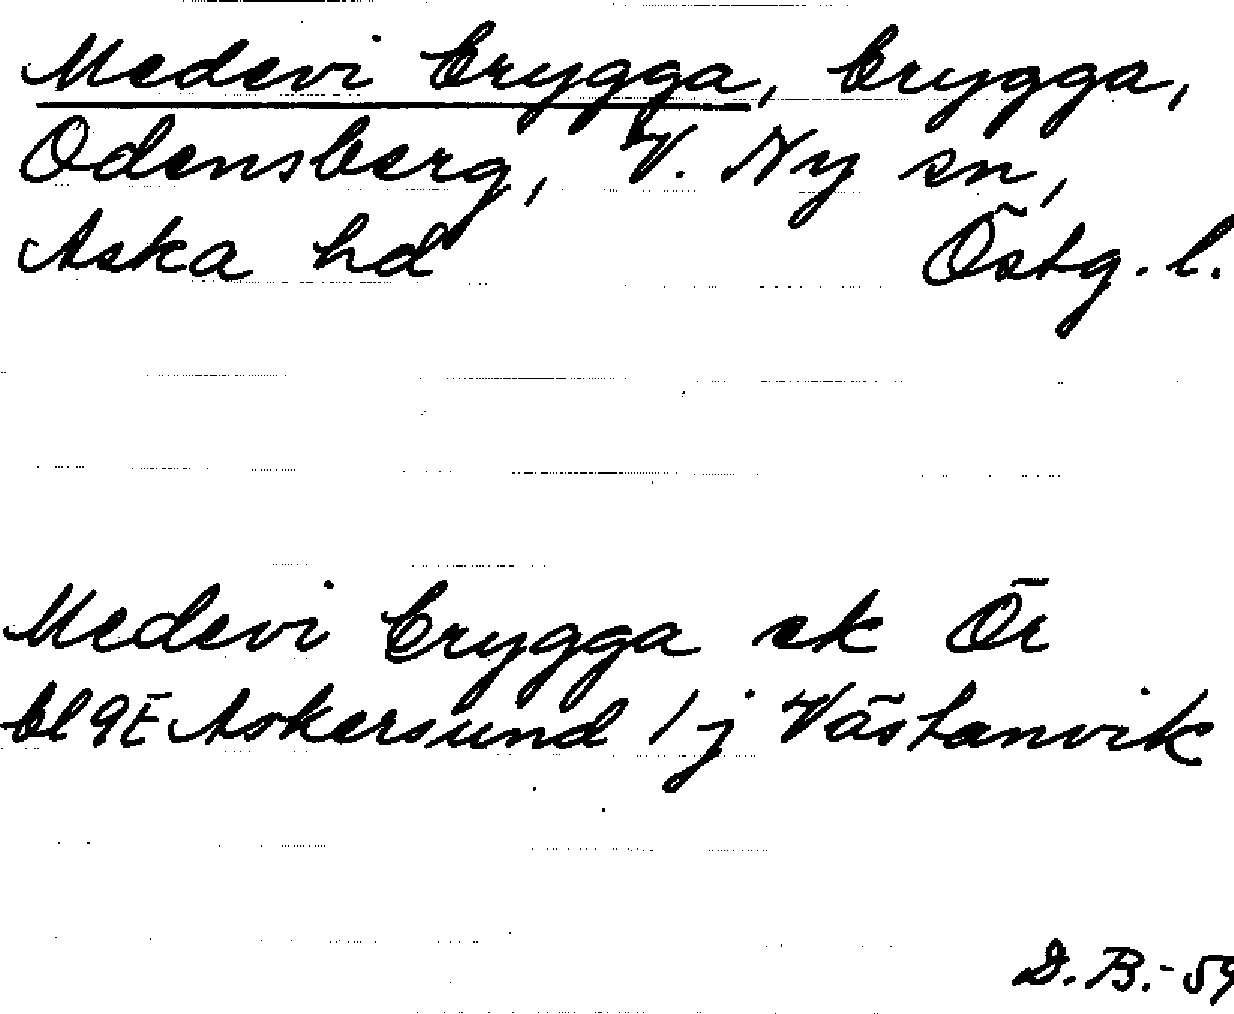 Medevi brygga, brygga,
Odensberg, V. Ny sn,
Aska hd Östg. l.
Medevi brygga ek Ör
bl 9E Askersund 1 j Västanvik
D.B.-59